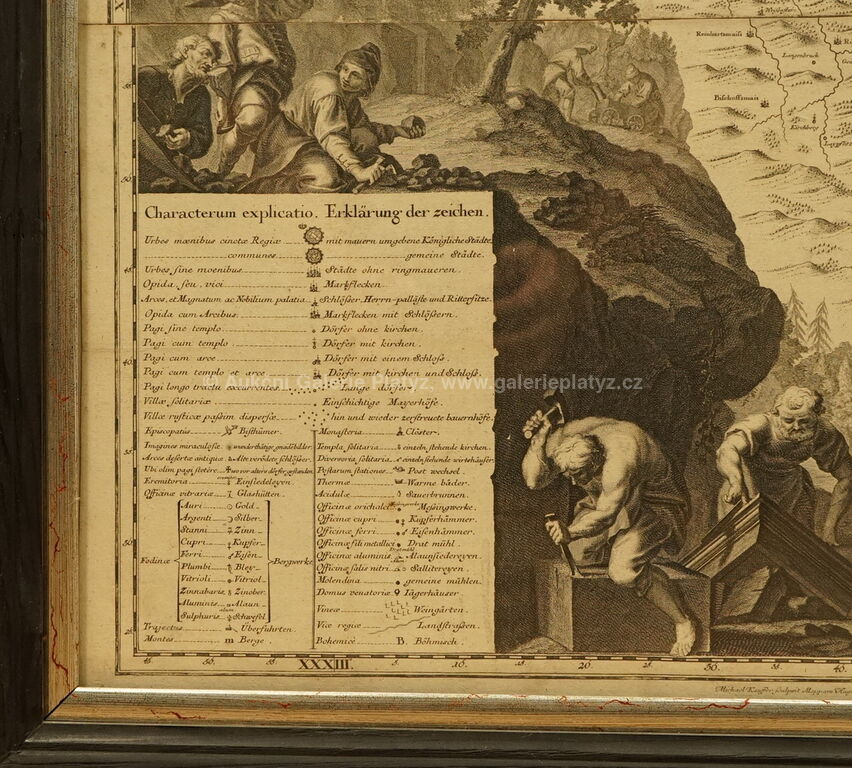 Reinhartsmaiß
Langenbruck
Bischoffsmais
Kirchberg
50.
Characterum explicatio. Erklärung der zeichen.
Urbes mœnibus cinctæ Regiæ mit mauern umgebene Königliche Städte
communes gemeine Städte.
Urbes sine moenibus Städte ohne ringmaueren.
Opida seu, vici Marktflecken.
Arces, et Magnatum ac Nobilium palatia Schlösser, Herrn-palläste und Rittersitze.
Opida cum Arcibus Marktflecken mit Schlössern.
Pagi sine templo Dörfer ohne kirchen.
Pagi cum templo Dörfer mit kirchen.
Pagi cum arce Dörfer mit einem Schloss.
Pagi cum templo et arce Dörfer mit kirchen und Schloss.
Pagi longo tractu excurrentes Lange dörfer.
© Aukční Galerie Platýz, www.galerieplatyz.cz
Villæ solitariæ Einschichtige Mayerhöfe.
Villæ rusticæ passim dispersæ hin und wieder zerstreute bauernhöfe.
Episcopatus Bisthümer.
Imagines miraculosæ wunderthätige gnadébilder.
Arces desertæ antiquæ Alte verödete schlösser.
Ubi olim pagi stetêre wo vor alters dörfer gestanden.
Eremitoria Einsiedeleyen.
Officinæ vitrariæ Glashütten.
Fodinæ
Auri Gold.
Argenti Silber.
Stanni Zinn.
Cupri Kupfer.
Ferri Eisen.
Plumbi Bley.
Vitrioli Vitriol.
Zinnabaris Zinober.
Aluminis Alaun.
Sulphuris Schwefel.
Bergwerke
Trajectus Überführten.
Montes m Berge.
Monasteria Clöster.
Templa solitaria eintzeln stehende kirchen.
Diversoria solitaria eintzeln stehende wirtshäuser.
Postarum stationes Post wechsel.
Thermæ Warme bäder.
Acidulæ Sauerbrunnen.
Officinæ orichalci Messingwerke.
Officinæ cupri Kupferhämmer.
Officinæ ferri Eisenhämmer.
Officinæ fili metallici Drat mühl.
Officinæ aluminis Alaunsiedereyen.
Officinæ salis nitri Sallitereyen.
Molendina gemeine mühlen.
Domus venatoriæ Jägerhäuser.
Vineæ Weingärten.
Viæ regiæ Landstrassen.
Bohemicè B. Böhmisch.
XXXIII.
5. 10. 15. 20. 25. 30. 35. 40.
Michael Kauffer sculpsit